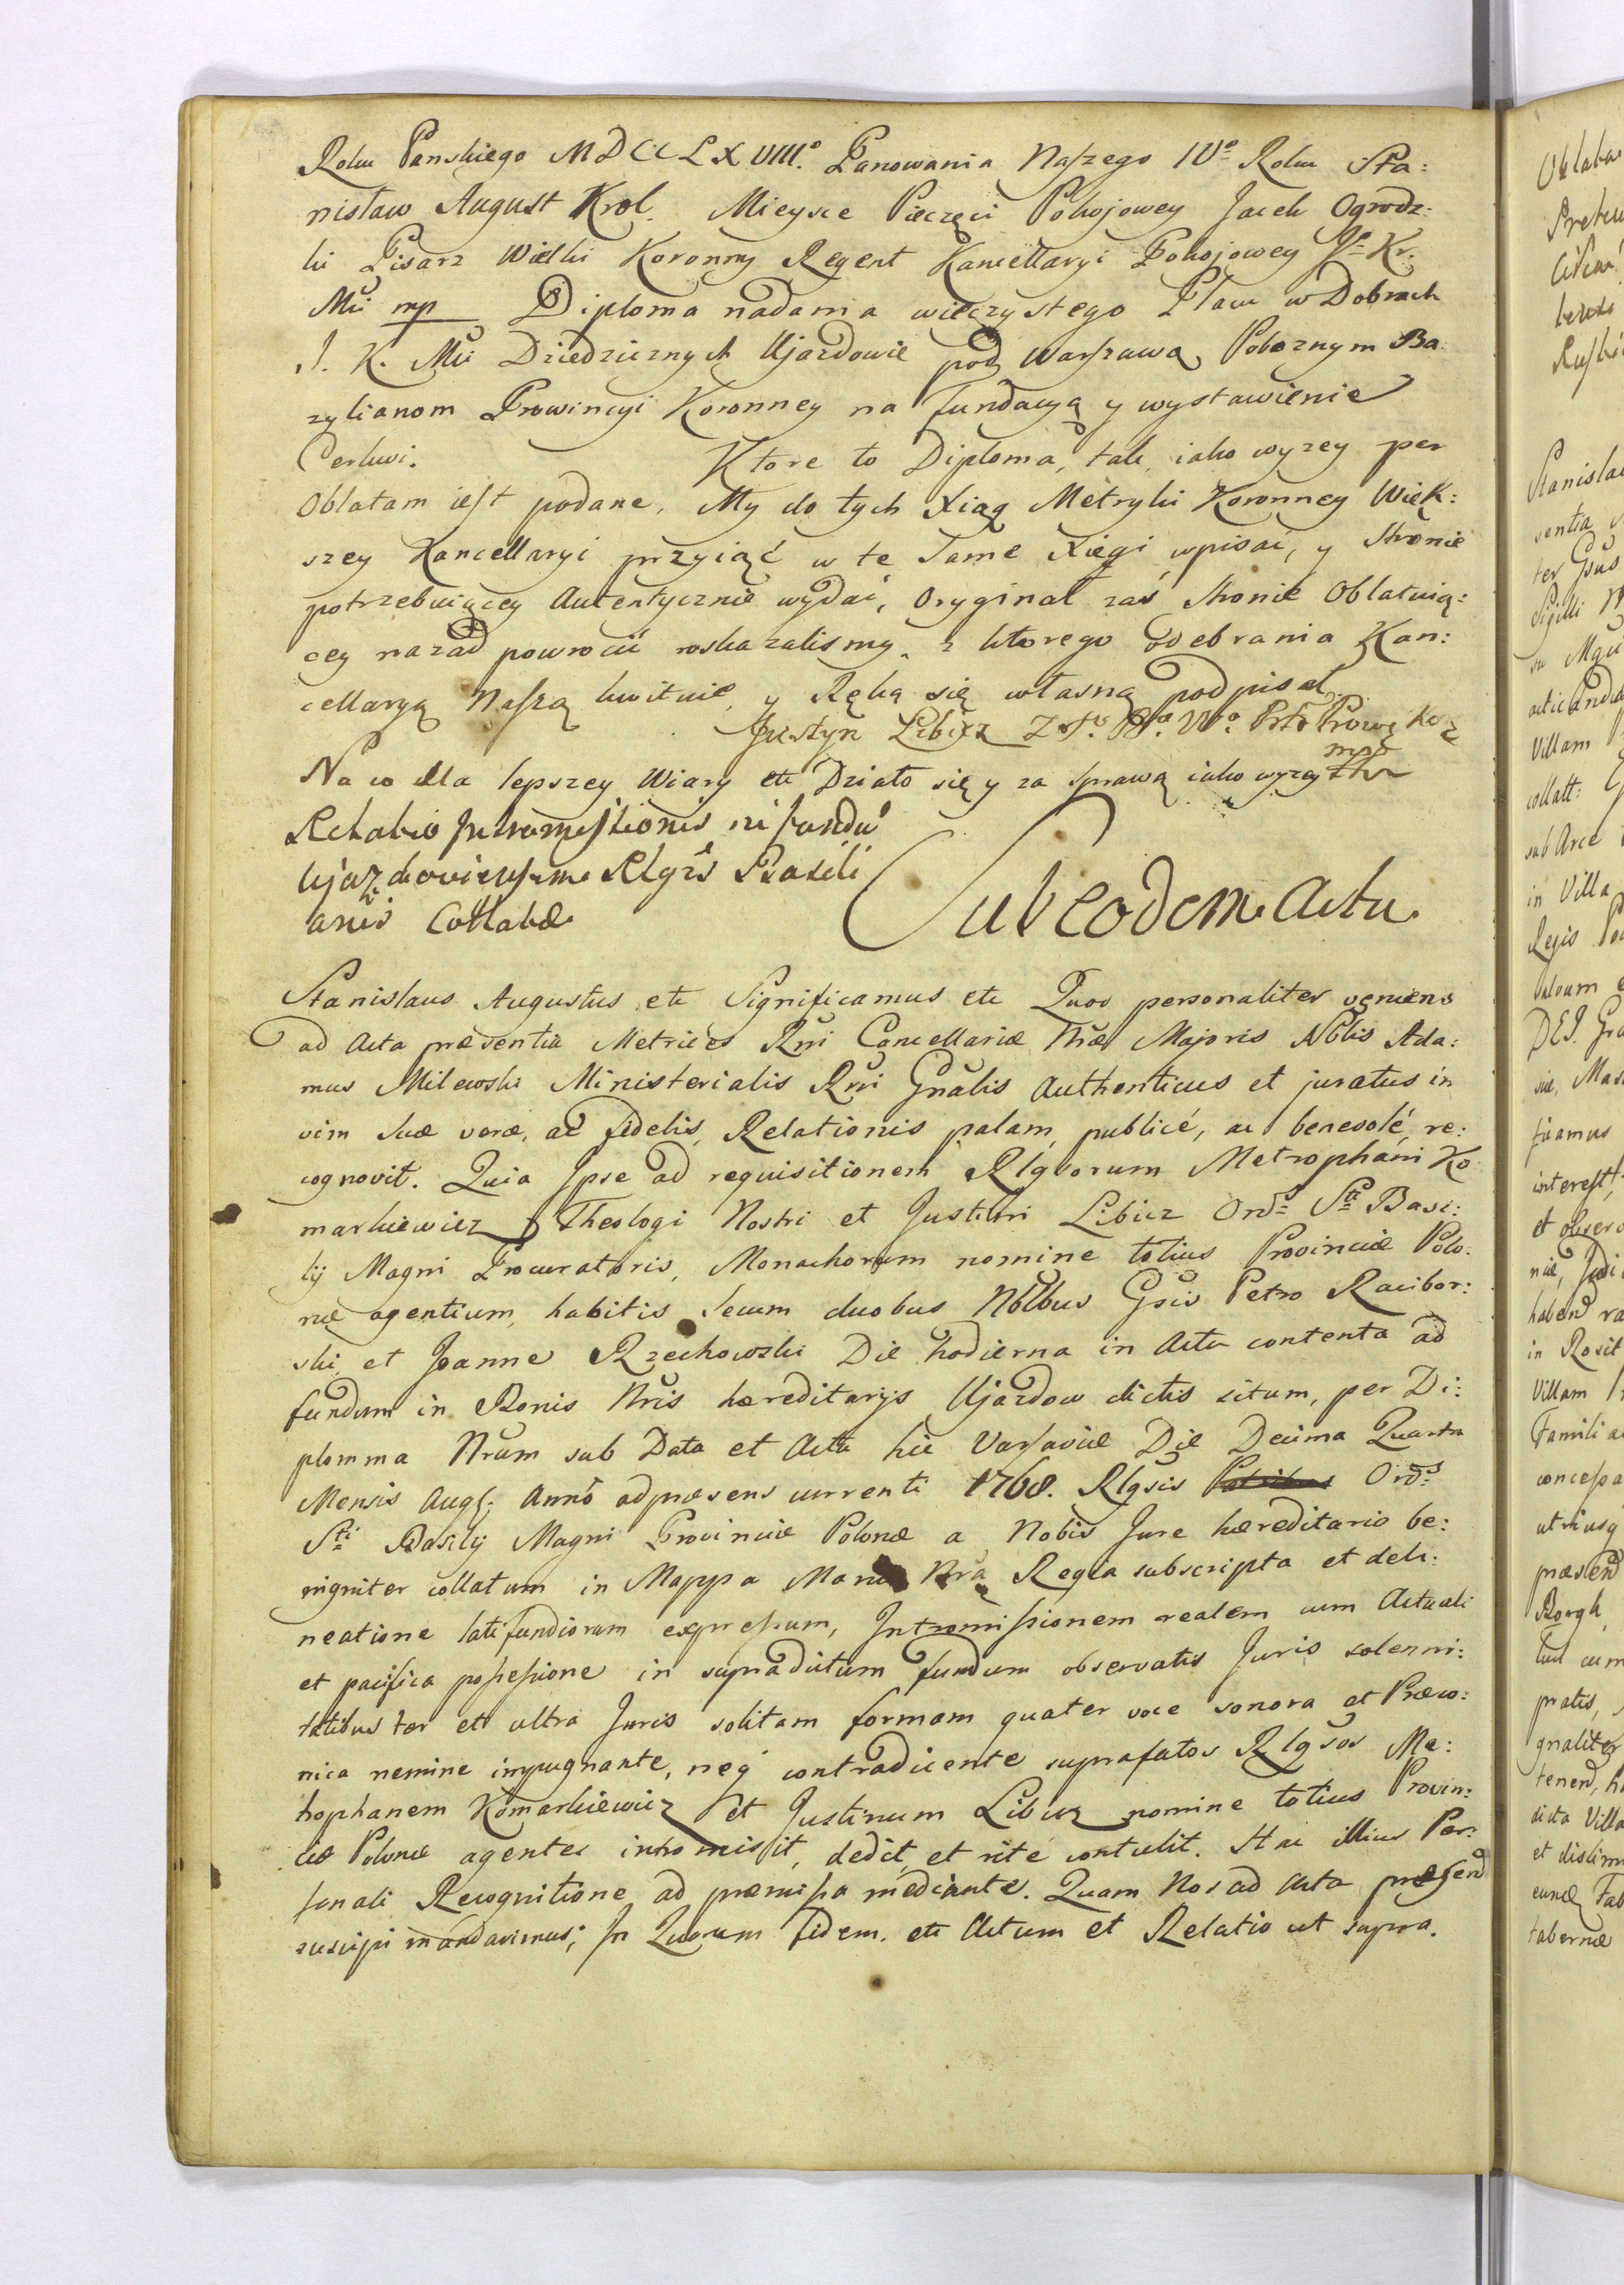 Roku Panskiego MDCCLXVIII.° Panowania Naszego IV° Roku Sta:
nisław August Krol. Mieysce Pieczęci Pokojowey Jacek Ogrodz:
ki Pisarz Wielki Koronny Regent Kancellaryi Pokojowey Jº Kr.
Mci mp Diploma nadania wieczystego Placu w Dobrach
J. K. Mci Dziedzicznych Ujazdowie pod Warszawą Poboznym Ba:
zylianom Prowincyi Koronney na fundacyą y wystawienie
Cerkwi. Ktore to Diploma, tak iako wyzey per
Oblatam iest podane, My do tych Xiąg Metryki Koronney Więk:
szey Kancellaryi przyiąć w te Same Xięgi wpisać, y Stronie
potrzebuiącey Autentycznie wydać, Oryginał zaś Stronie Oblatuią:
cey nazad powrocić roskazalismy, z ktorego odebrania Kan:
cellaryą Naszą kwituie, y Ręką się własną podpisał.
Justyn Libicz Z. S. B. W.
mp
Na co dla lepszey Wiary etc Działo się y za Sprawą iako wyzey
Relatio Intromissionis in fundũ
Ujazdoviensem Rlgis Basili
anis Collatæ
Sub eodem Actu.
Stanislaus Augustus etc Significamus etc Quod personaliter veniens
ad Acta præsentia Metrices Rni Cancellariæ Nræ Majoris Nobilis Ada:
mus Milewski Ministerialis Rni Gnalis Authenticus et juratus in
vim suæ veræ, ac fidelis Relationis palam, publicé, ac benesolé, re:
cognovit. Quia Ipse ad requisitionem Rlgsorum Metrophani Ko
markiewicz Theologi Nostri et Justini Libicz Ord= Sti Basi:
lij Magni Procuratoris, Monachorum nomine totius Provinciæ Polo:
næ agentium, habitis secum duobus Nblbus Gsis Petro Racibor:
ski et Joanne Rzechowski Die hodierna in Actu contenta ad
fundum in Bonis Nris hæreditarijs Ujazdow dictis situm, per Di:
plomma Nrum sub Data et Actu hic Varsaviæ Die Decima Quarta
Mensis Augt: Anno ad præsens currenti 1768. Rlgsis Patribus Ord=
Sti Basilij Magni Provinciæ Polonæ a Nobis Jure hæreditario be:
nigniter collatum in Mappa Manu Nra Regia subscripta et deli:
neatione latifundiorum expressum, Intromissionem realem cum Actuali
et pacifica possessione in supradictum fundum observatis Juris solenni:
tatibus ter et ultra Juris solitam formam quater voce sonora et Præco:
nica nemine impugnante, neq contradicente suprafatos Rlgsos Me:
trophanem Komarkiewicz et Justinum Libicz nomine totius Provin:
ciæ Polonæ agentes intromisit, dedit, et rité contulit. Hac illius Per:
sonali Recognitione ad præmissa mediante. Quam Nos ad Acta præsend
suscipi mandavimus; In Quorum fidem. etc Actum et Relatio ut supra.